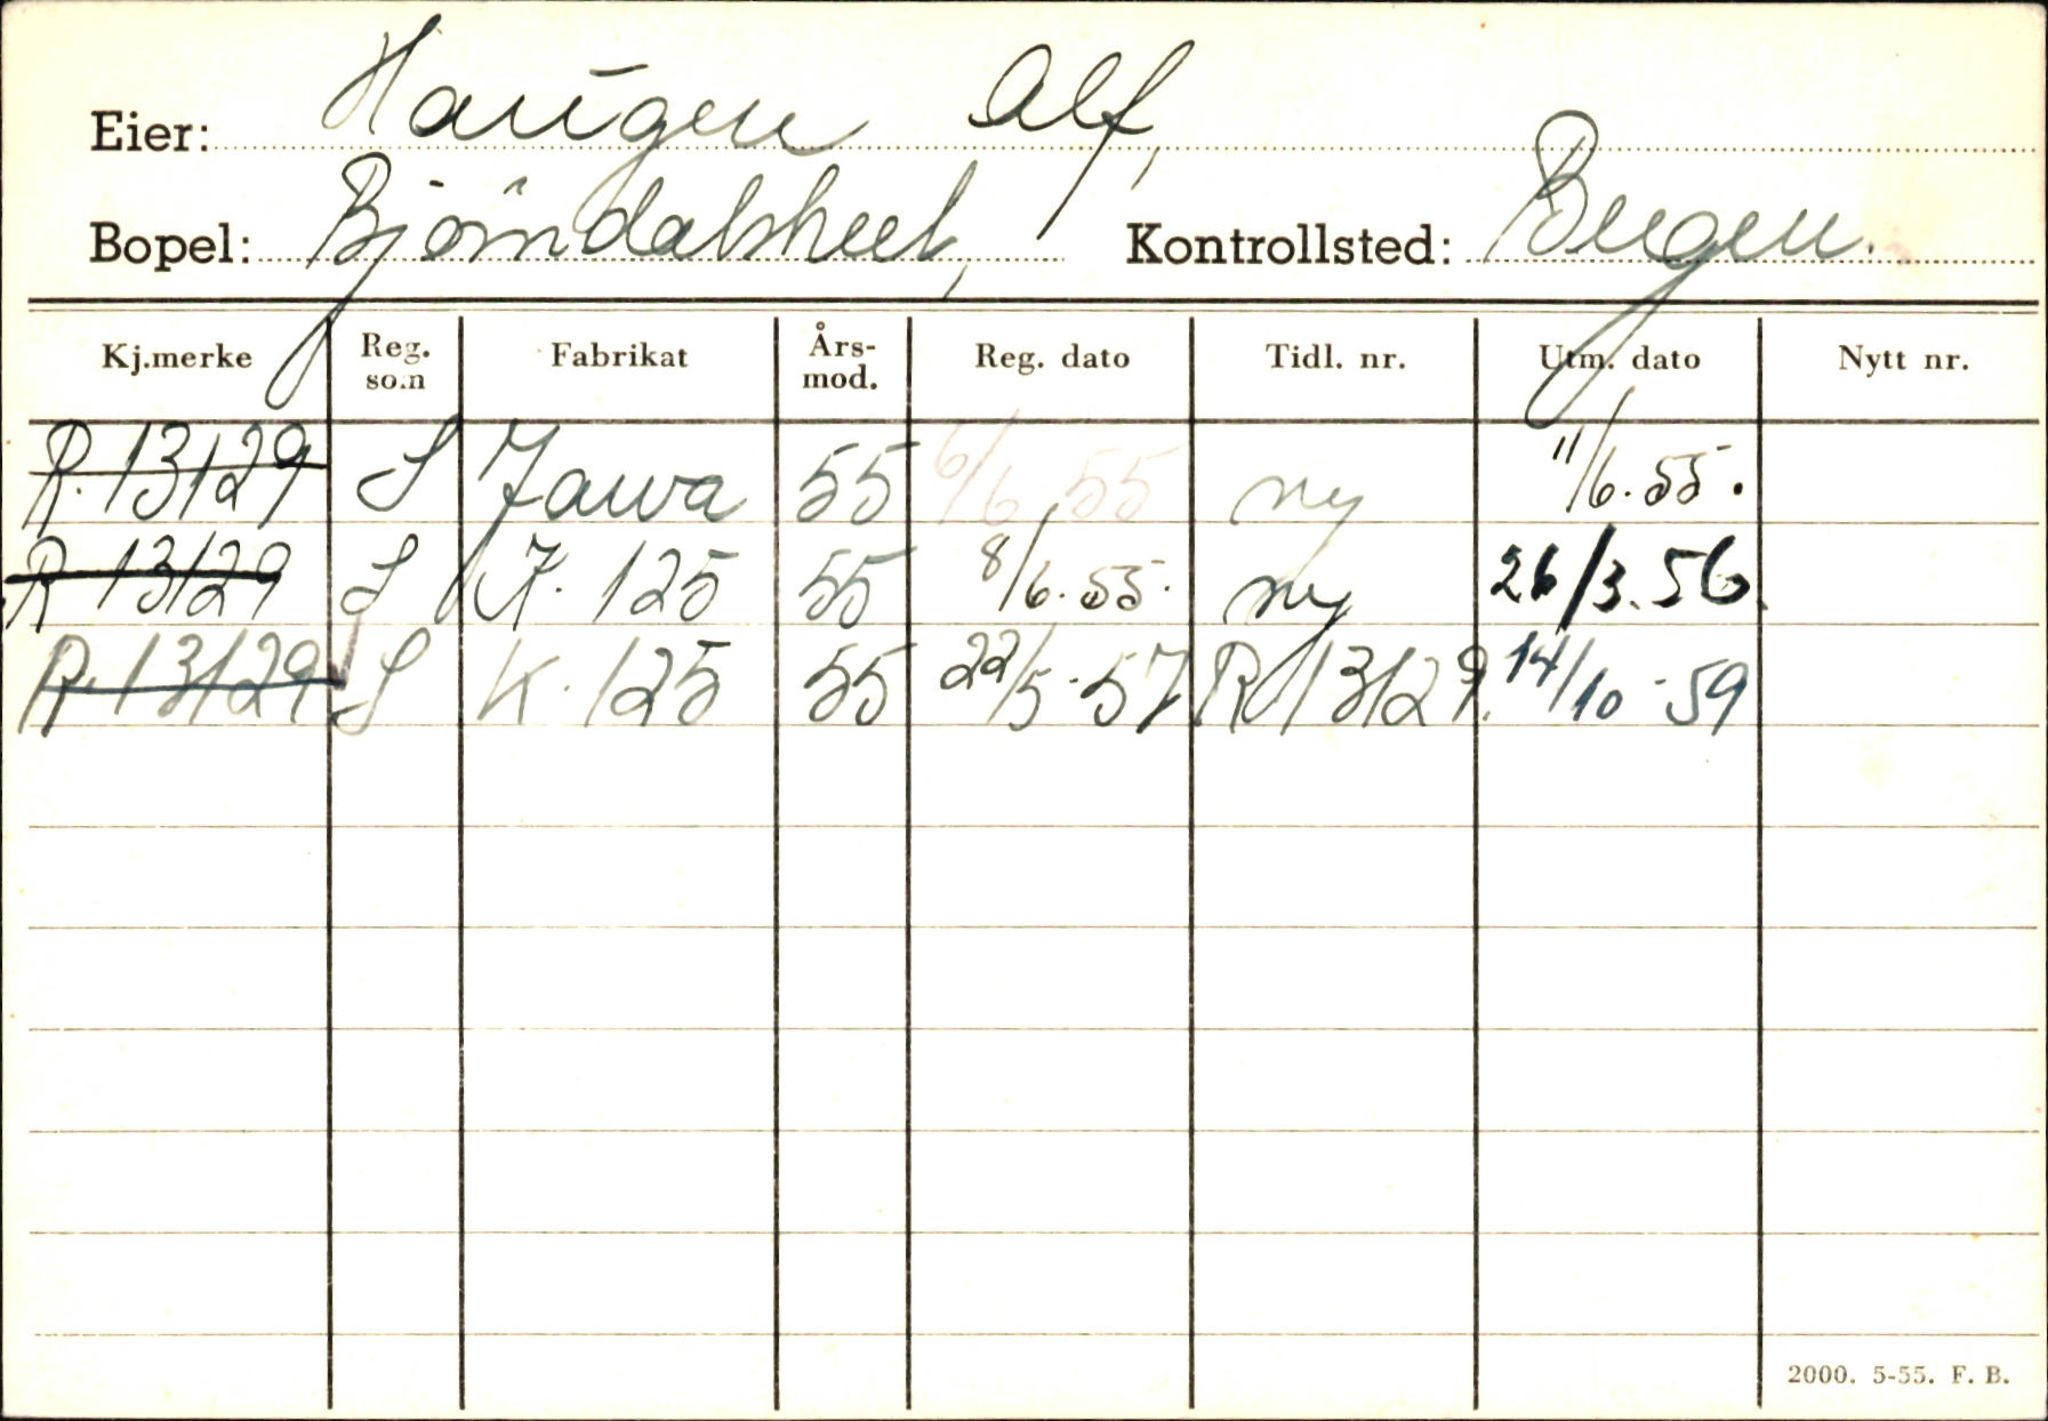 Eier: Haugen Alf,
Bopel: Bjørndalstræ, Kontrollsted: Bergen.
Kj.merke Reg. som Fabrikat Års-mod. Reg. dato Tidl. nr. Utm. dato Nytt nr.
R. 13129 S Jawa 55 6/6 55 ny 11/6. 55.
R 13129 S K. 125 55 8/6. 55. ny 26/3. 56.
R. 13129 S K. 125 55 22/5-57 R 13129. 14/10-59
2000. 5-55. F. B.